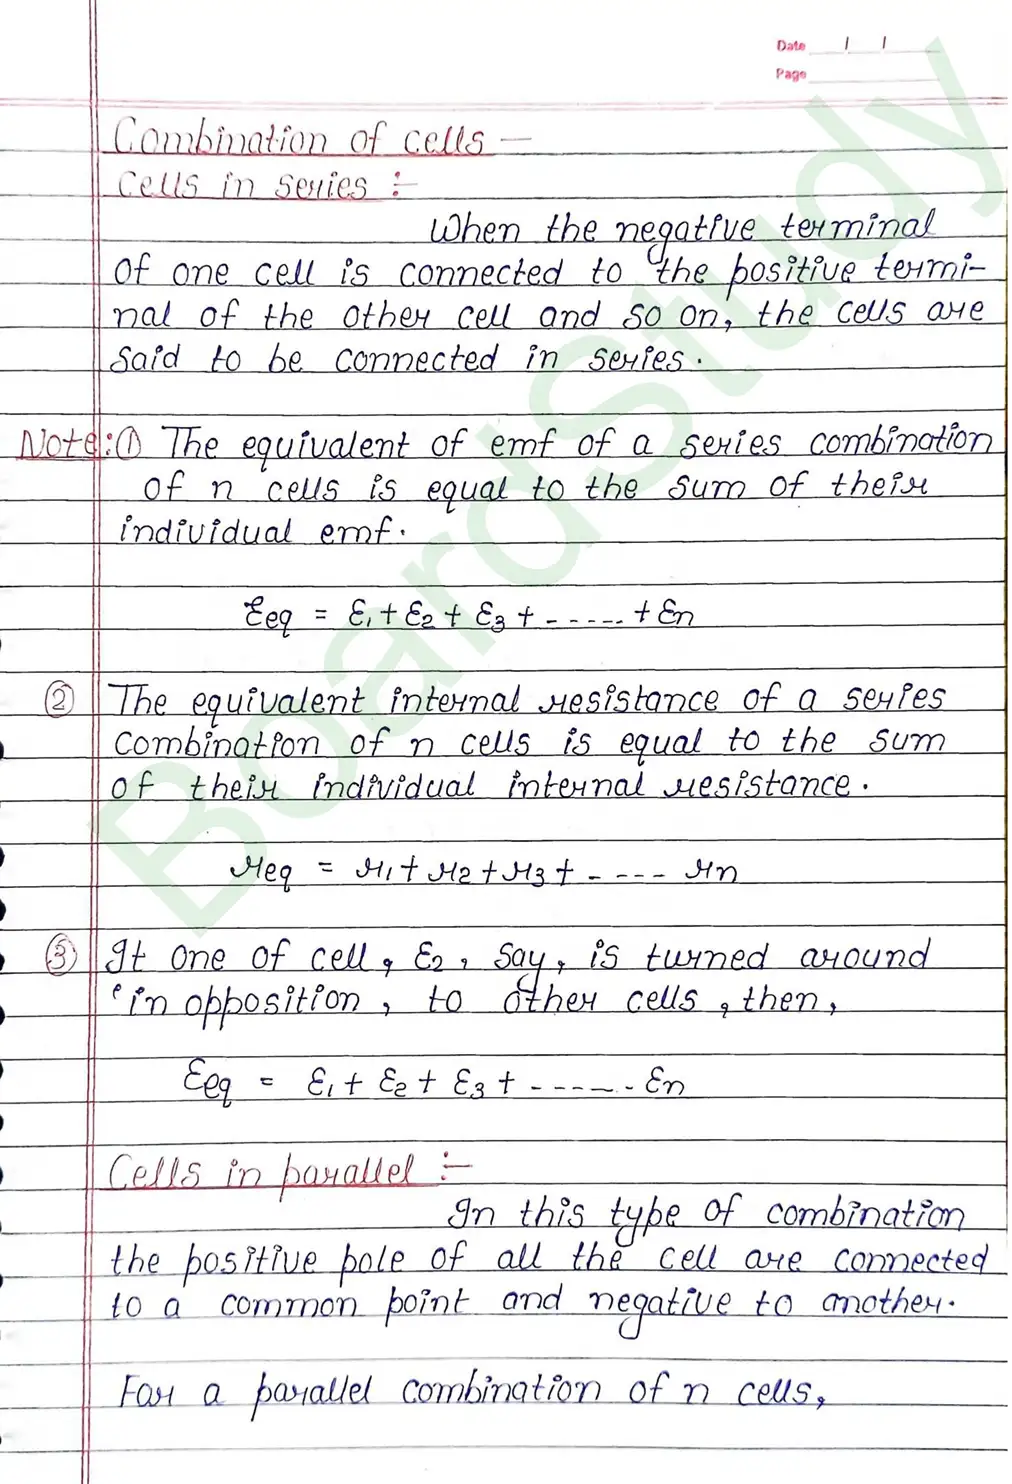 Date / /
Page
Combination of cells —
Cells in series :-
When the negative terminal
of one cell is connected to the positive termi-
nal of the other cell and so on, the cells are
said to be connected in series.
Note:① The equivalent of emf of a series combination
of n cells is equal to the sum of their
individual emf.
Ɛeq = Ɛ1 + Ɛ2 + Ɛ3 + ------ + Ɛn
② The equivalent internal resistance of a series
combination of n cells is equal to the sum
of their individual internal resistance.
req = r1 + r2 + r3 + ---- rn
③ It one of cell, Ɛ2, say, is turned around
in opposition, to other cells, then,
Ɛeq = Ɛ1 + Ɛ2 + Ɛ3 + ------ Ɛn
Cells in parallel :-
In this type of combination
the positive pole of all the cell are connected
to a common point and negative to another.
For a parallel combination of n cells,
BoardStudy